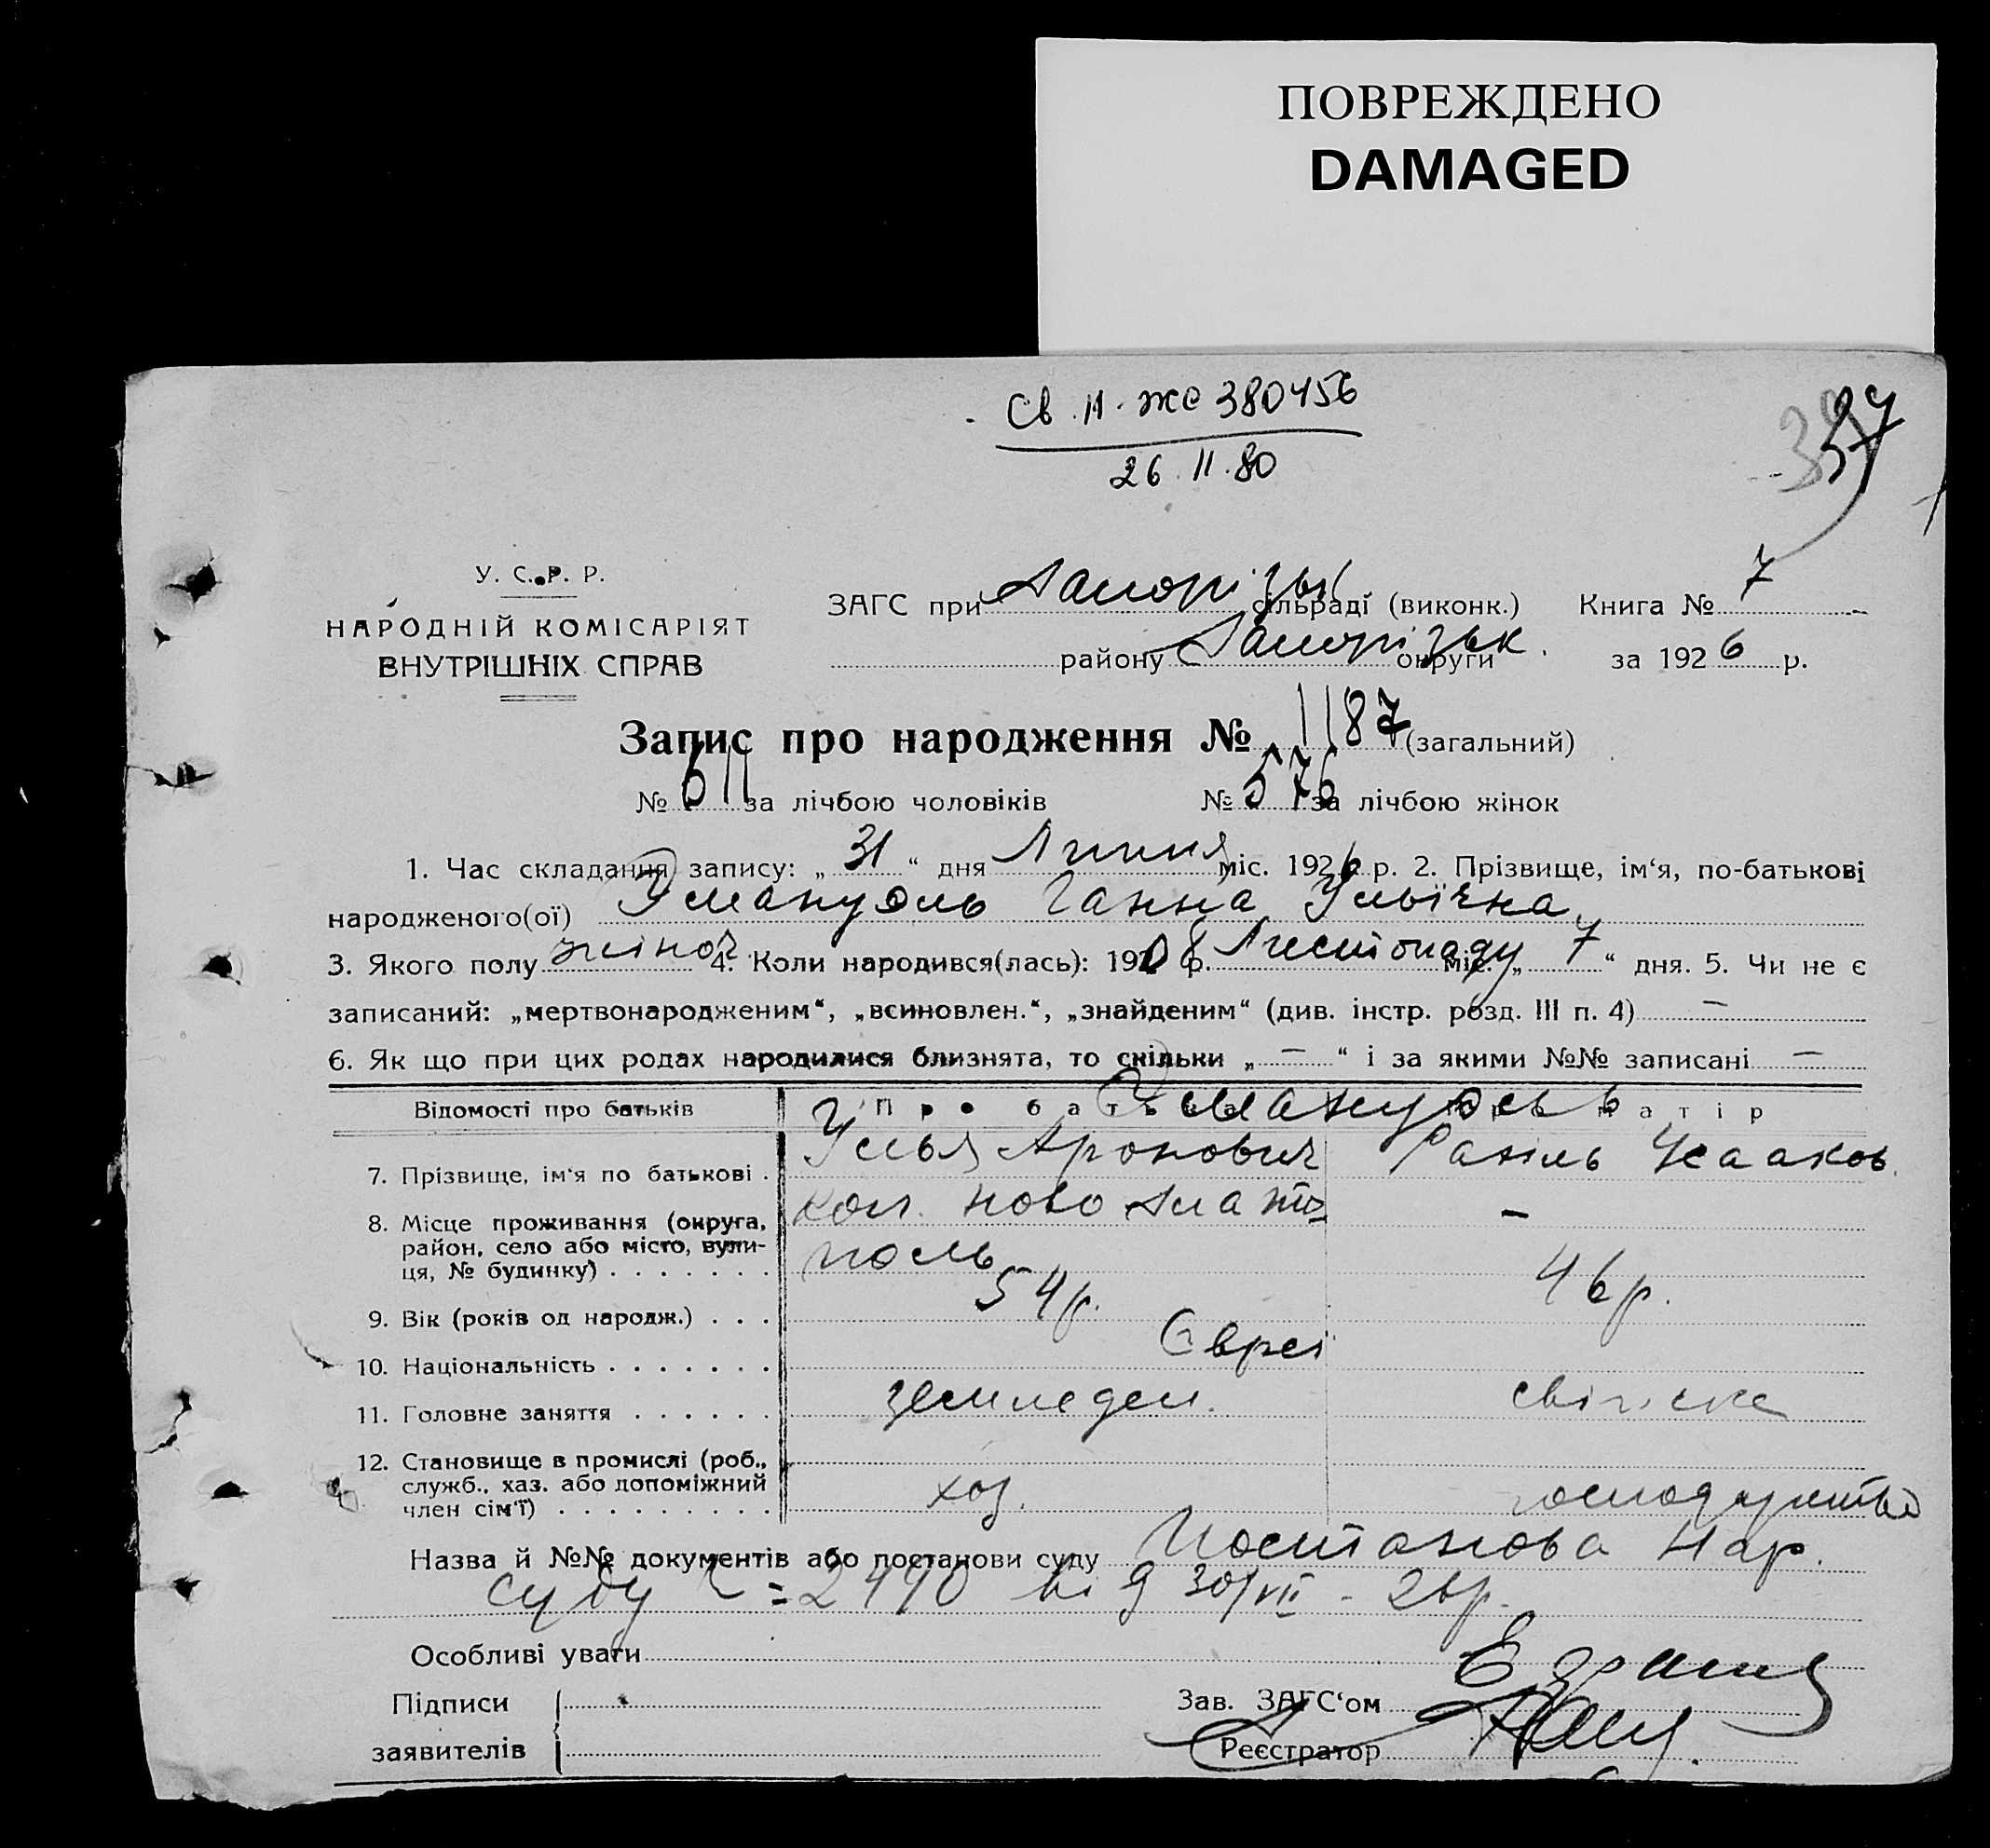 ПОВРЕЖДЕНО
DAMAGED
Св. II-ЖС 380456
26.11.80
37
У. С. Р. Р.
НАРОДНІЙ КОМІСАРІЯТ
ВНУТРІШНІХ СПРАВ
ЗАГС при Запорізьк сільраді (виконк.) Книга № 7
району Запорізьк. округи за 1926 р.
Запис про народження № 1187 (загальний)
№ 611 за лічбою чоловіків № 576 за лічбою жінок
1. Час складання запису: „ 31 “ дня Липня міс. 1926 р. 2. Прізвище, ім‘я, по-батькові
народженого(ої) Эмануэль Ганна Ильїчна
3. Якого полу жіноч. 4. Коли народився(лась): 1908 р. Листопаду міс. „ 7 “ дня. 5. Чи не є
записаний: „мертвонародженим“, „всиновлен.“, „знайденим“ (див. інстр. розд. III п. 4) —
6. Як що при цих родах народилися близнята, то скільки „ — “ і за якими №№ записані —
Відомості про батьків Про батька Про матір
Эмануэль
7. Прізвище, ім‘я по батькові . Илья Аронович Рахіль Исааков.
8. Місце проживання (округа, кол. Ново Злато- —
район, село або місто, вули-
ця, № будинку) . . . . . . . поль
9. Вік (років од народж.) . . . 54 р. 46 р.
10. Національність . . . . . . . Євреї
11. Головне заняття . . . . . . земледел. свійське
12. Становище в промислі (роб.,
служб., хаз. або допоміжний хоз. господарство
член сім‘ї) . . . . . . . . .
Назва й №№ документів або постанови суду Постанова Нар.
суду № 2490 від 30/VII - 26 р.
Особливі уваги
Підписи
заявителів
Зав. ЗАГС‘ом
Реєстратор